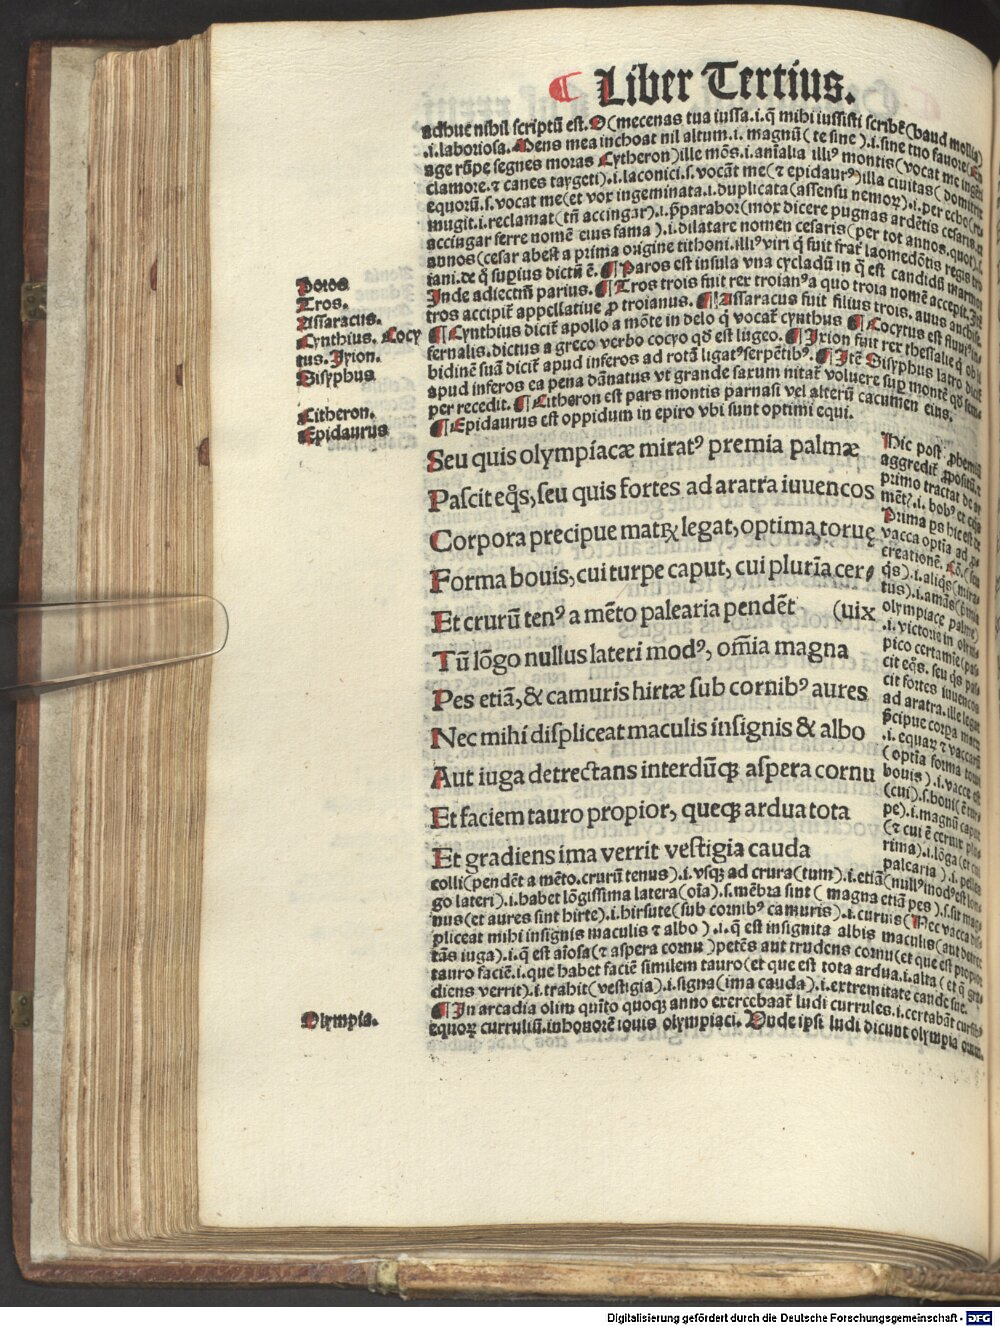 Liber Tertius.
adhuc nihil scriptũ est. O (mecenas tua iussa .i. q̃ mihi iussisti scribẽ (haud mollia)
.i. laboriosa. Mens mea inchoat nil altum .i. magnũ (te sine) .i. sine tuo fauore (En
age rũpe segnes moras Cytheron) ille mõs .i. aniãlia illiꝰ montis (vocat me ingẽti
clamore. ⁊ canes taygeti) .i. laconici .s. vocãt me (⁊ epidaurꝰ) illa ciuitas (domitrix
equorũ .s. vocat me (et vox ingeminata .i. duplicata (assensu nemoꝝ) .i. per echo (re
mugit .i. reclamat (tñ accingar) .i. p̃parabor (mox dicere pugnas ardẽtis cesaris .i.
accingar ferre nomẽ eius fama) .i. dilatare nomen cesaris (per tot annos. quot) .i.
annos (cesar abest a prima origine tithoni. illiꝰ viri q̃ fuit frat̃ laomedõtis regis tro
iani. de q̃ supius dictũ ẽ. ¶ Paros est insula vna cycladũ in q̃ est candidũ marmor
Inde adiectiũ parius. ¶ Tros trois fuit rex troianꝰ a quo troia nomẽ accepit. Ite
tros accipit̃ appellatiue ꝓ troianus. ¶ Assaracus fuit filius trois. auus anchise.
¶ Cynthius dicit̃ apollo a mõte in delo q̃ vocat̃ cynthus ¶ Cocytus est fluuiꝰ in
fernalis. dictus a greco verbo cocyo qď est lugeo. ¶ Ixion fuit rex thessalie q̃ ob li
bidinẽ suã dicit̃ apud inferos ad rotã ligatꝰ serpẽtibꝰ. ¶ Itẽ Sisyphus latro dicit̃
apud inferos ea pena dãnatus vt grande saxum nitat̃ voluere sup montẽ qď sem
per recedit. ¶ Citheron est pars montis parnasi vel alterũ cacumen eius.
¶ Epidaurus est oppidum in epiro vbi sunt optimi equi.
Poros
Tros.
Assaracus.
Cynthius. Cocy
tus. Ixion.
Sisyphus
Citheron.
Epidaurus
Seu quis olympiacæ miratꝰ premia palmæ
Pascit eq̃s, seu quis fortes ad aratra iuuencos
Corpora precipue matꝝ legat, optima toruę
Forma bouis, cui turpe caput, cui plurĩa cer
Et crurũ tenꝰ a mẽto palearia pendẽt (uix
Tũ lõgo nullus lateri modꝰ, om̃ia magna
Pes etiã, & camuris hirtæ sub cornibꝰ aures
Nec mihi displiceat maculis insignis & albo
Aut iuga detrectans interdũcꝗ aspera cornu
Et faciem tauro propior, queꝗ ardua tota
Et gradiens ima verrit vestigia cauda
Hic post ꝓhemiũ
aggredit̃ ꝓpositũ. ⁊
primo tractat de ar
mẽt̃ .i. bobꝰ et eqs
Prima ps hic est de
vacca optĩa ad p
creationẽ. Cõ. (seu
q̃s) .i. aliqs (mira
tus) .i. amãs (p̃mia
olympiace palme)
.i. victorie in olym
pico certamĩe (pas
cit eq̃s. seu q̃s pas
cit fortes iuuencos
ad aratra. ille legat
p̃cipue corpa matꝝ
.i. equaꝝ ⁊ vaccarũ
(optĩa forma torue
bouis) .i. vacce est
(cui) .s. boui (ẽ tur
pe) .i. magnũ caput
(⁊ cui ẽ ceruix plu
rima) .i. lõga (et cui
palearia) .i. pelles
colli (pendẽt a mẽto. crurũ tenus) .i. vsꝗ ad crura (tum) .i. etiã (nullꝰ modꝰ est lon
go lateri) .i. habet lõgissima latera (oĩa) .s. mẽbra sint (magna etiã pes) .s. sit mag
nus (et aures sint hirte) .i. hirsute (sub cornibꝰ camuris) .i. curuis (Nec vacca dis
pliceat mihi insignis maculis ⁊ albo) .i. q̃ est insignita albis maculis (aut detrec
tãs iuga) .i. q̃ est aĩosa (⁊ aspera cornu) petẽs aut trudens cornu (et que est propior
tauro faciẽ .i. que habet faciẽ similem tauro (et que est tota ardua .i. alta (et q̃ gra
diens verrit) .i. trahit (vestigia) .i. signa (ima cauda) .i. extremitate caude sue.
¶ In arcadia olim quito quoꝗ anno exercebaat̃ ludi currules .i. certabãt cursibꝰ
equoꝝ currulium in honorẽ iouis olympiaci. Unde ipsi ludi dicunt̃ olympia orum.
Olympia.
Digitalisierung gefördert durch die Deutsche Forschungsgemeinschaft - DFG